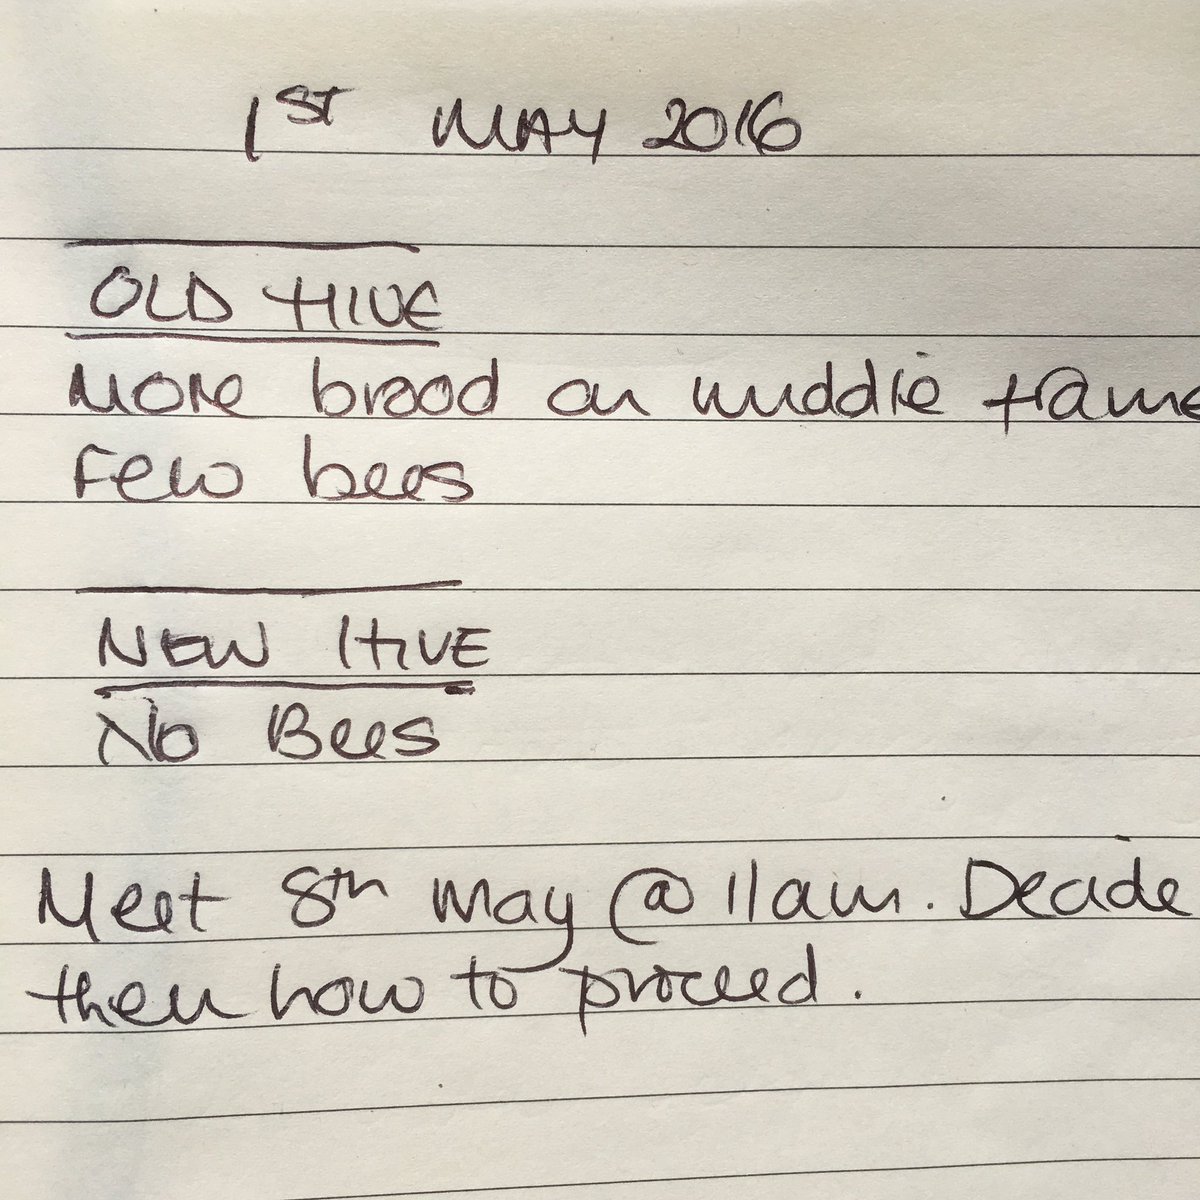 1ST MAY 2016
OLD HIVE
More brood on middle frame
Few bees
NEW HIVE
No Bees
Meet 8th May @ 11am. Decide
then how to proceed.